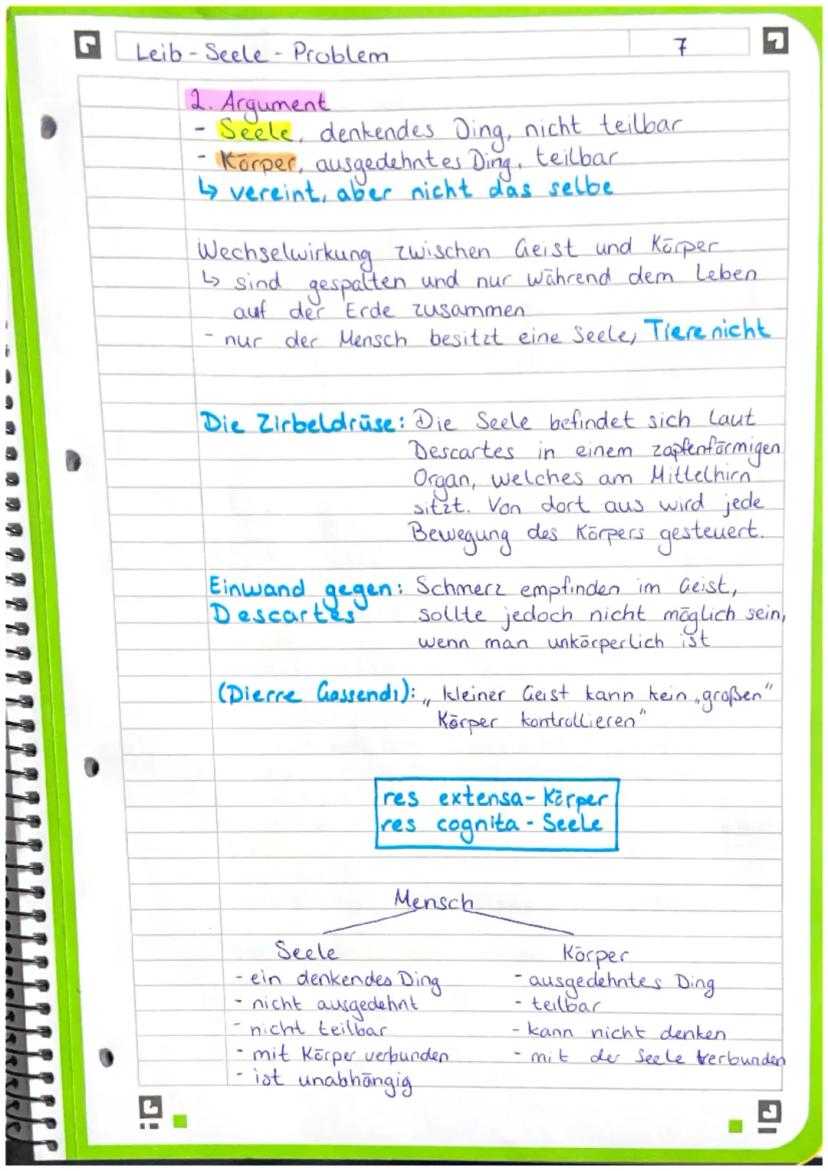 Leib-Seele-Problem 7
2. Argument
- Seele, denkendes Ding, nicht teilbar
- Körper, ausgedehntes Ding, teilbar
↳ vereint, aber nicht das selbe
Wechselwirkung zwischen Geist und Körper
↳ sind gespalten und nur während dem Leben
auf der Erde zusammen
- nur der Mensch besitzt eine Seele, Tiere nicht
Die Zirbeldrüse: Die Seele befindet sich laut
Descartes in einem zapfenförmigen
Organ, welches am Mittelhirn
sitzt. Von dort aus wird jede
Bewegung des Körpers gesteuert.
Einwand gegen: Schmerz empfinden im Geist,
Descartes sollte jedoch nicht möglich sein,
wenn man unkörperlich ist
(Dierre Gassendi): „kleiner Geist kann kein „großen"
Körper kontrollieren"
res extensa - Körper
res cognita - Seele
Mensch
Seele
- ein denkendes Ding
- nicht ausgedehnt
- nicht teilbar
- mit Körper verbunden
- ist unabhängig
Körper
- ausgedehntes Ding
- teilbar
- kann nicht denken
- mit der Seele verbunden